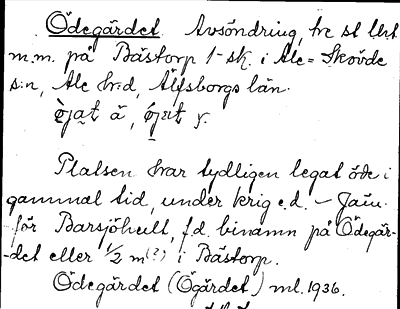 Ödegärdet Avsöndring, tre st lht
m.m. på Bästorp 1 sk. i Ale=Skövde
s:n, Ale h:d, Älfsborgs län.
å, y.
Platsen har tydligen legat öde i
gammal tid, under krig e.d. – Jäm-
för Barsjöhult, f.d. binamn på Ödegär-
-det eller 1/2 m (?) i Bästorp.
Ödegärdet (Ögärdet) ml. 1936.